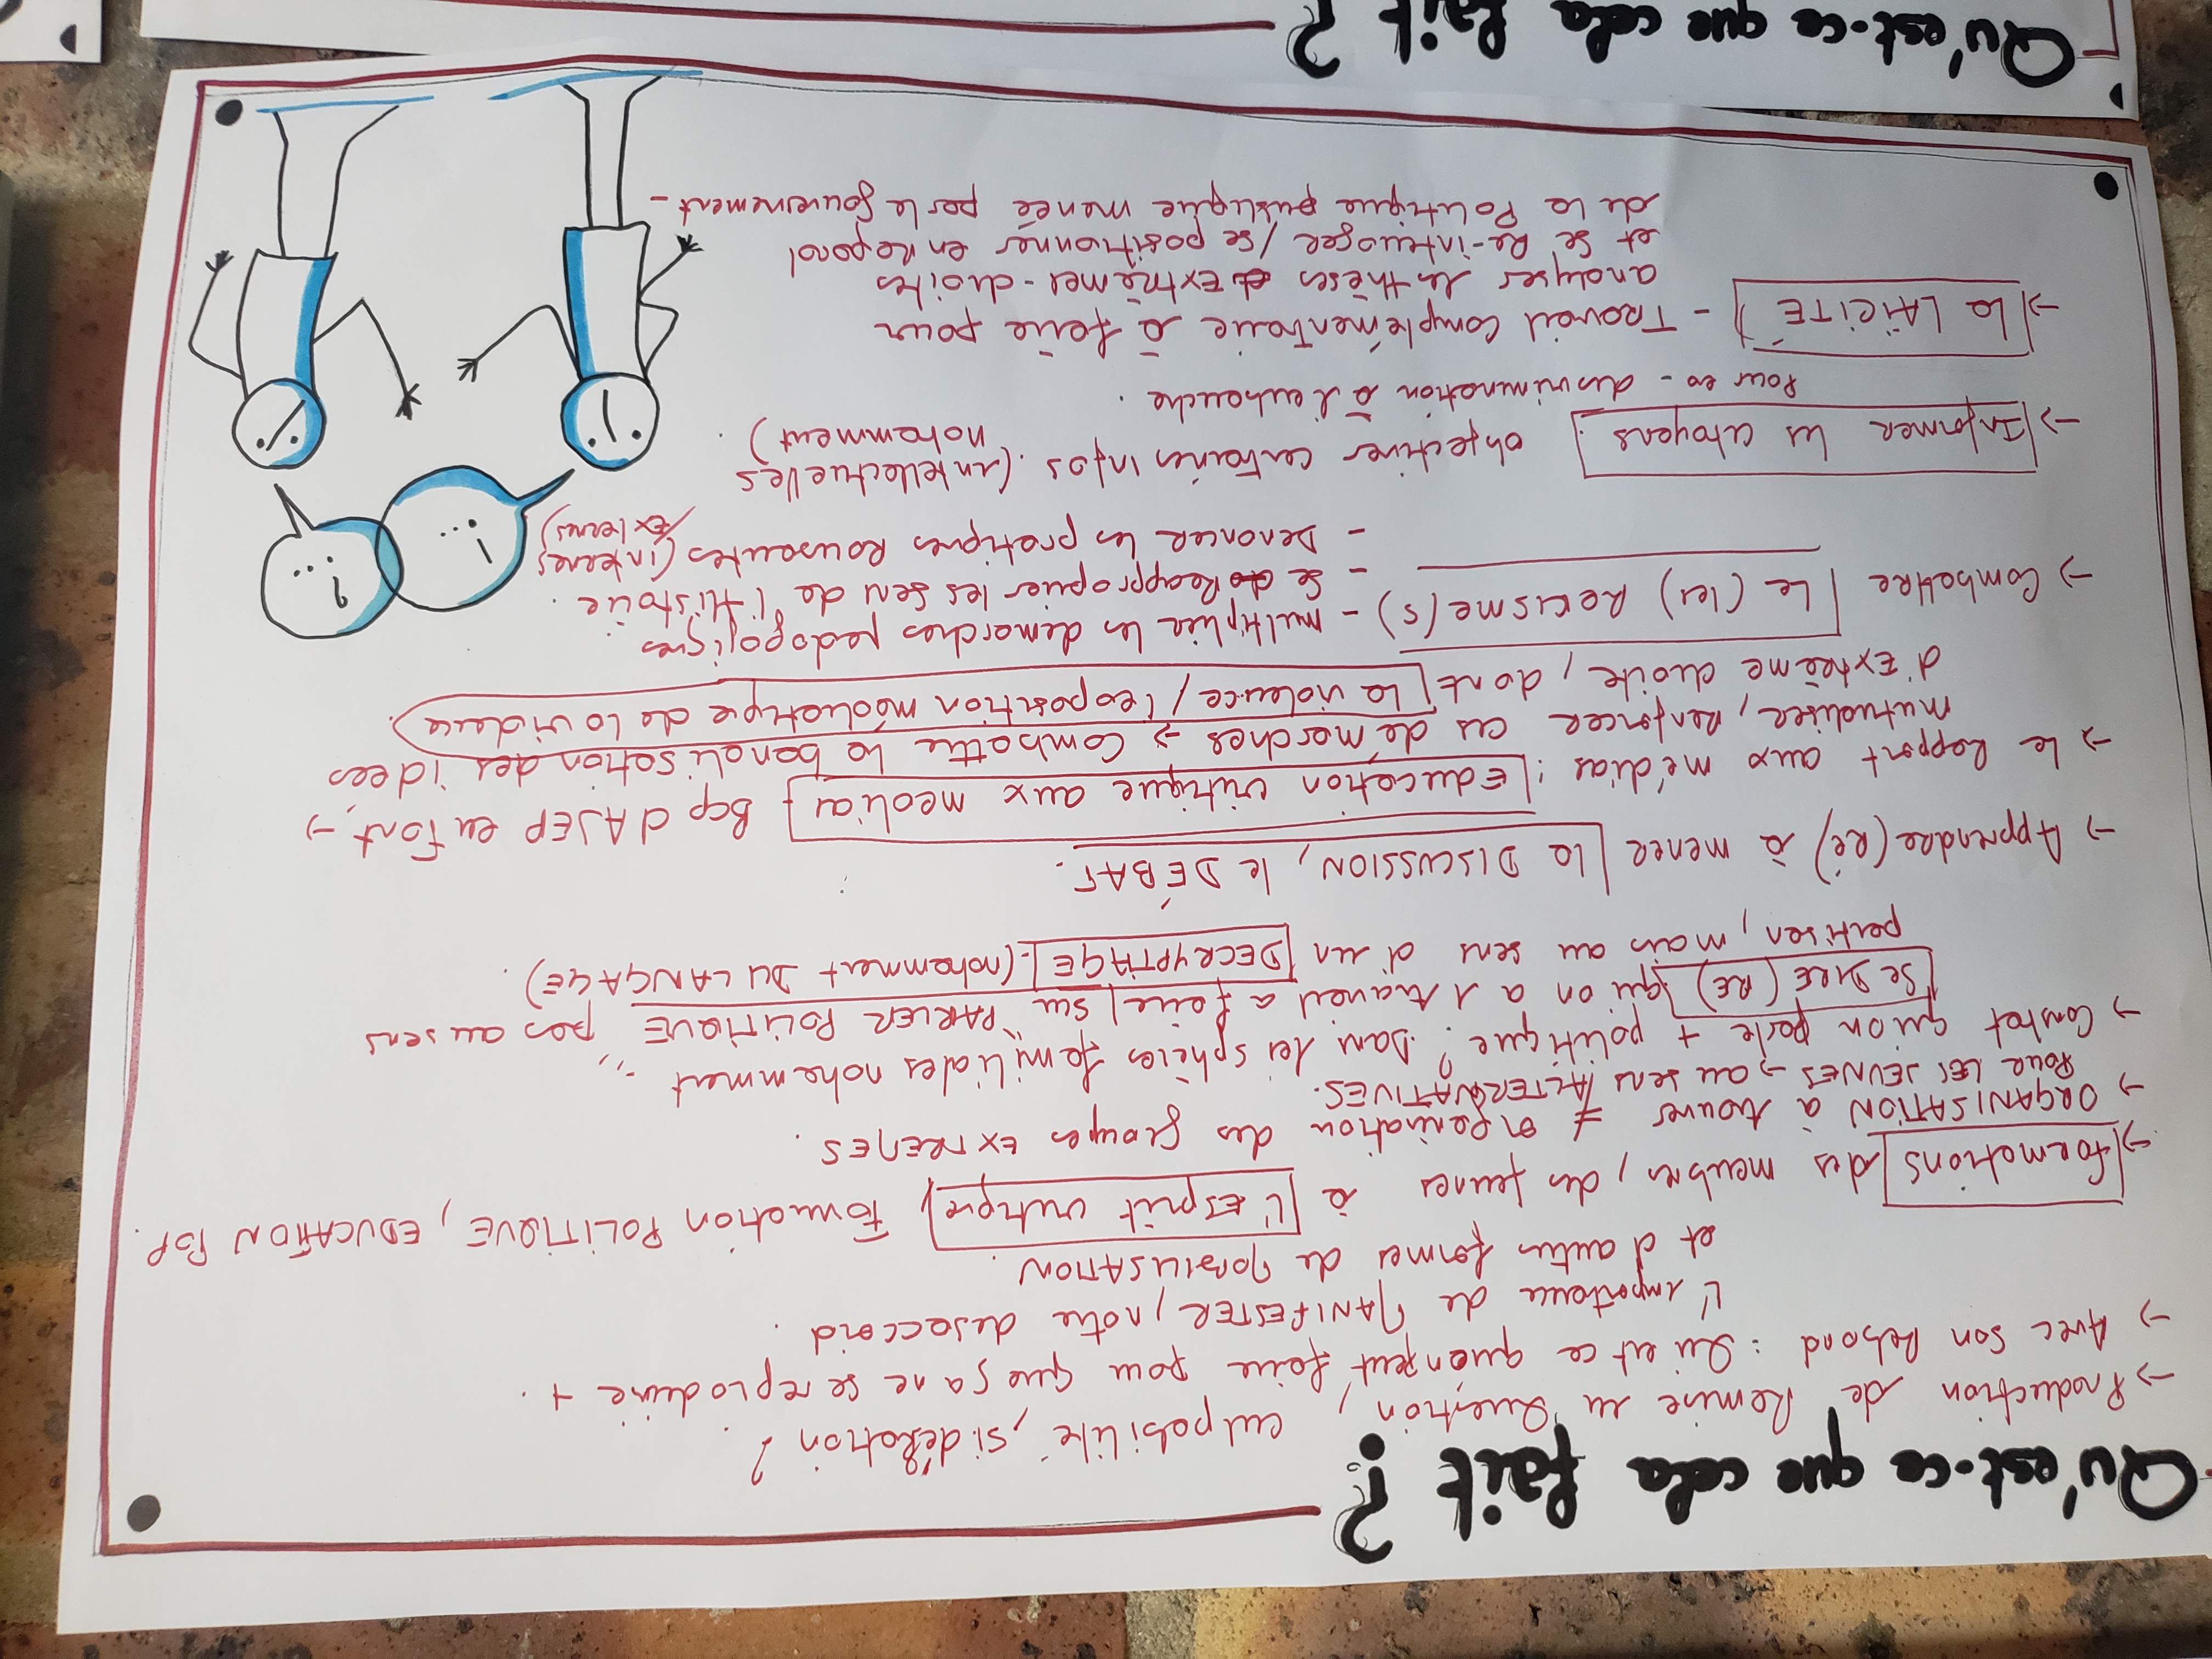 Qu'est-ce que cela fait ?
→ Production de Remise en Question, culpabilité, sidération ?
→ Avec son Rebond : Qu'est ce qu'on peut faire pour que ça ne se reproduise +.
L'importance de MANIFESTER, notre desaccord.
et d'autres formes de MOBILISATION.
→ formations des membres, des jeunes à L'Esprit critique, Formation POLITIQUE, EDUCATION POP.
→ ORGANISATION à trouver ≠ organisation des groupes EXTREMES.
POUR LES JEUNES → au sens ALTERNATIVES.
→ Constat qu'on parle + politique ? Dans les sphères familiales notamment
Se DIRE (RE) qu'on a 1 travail a faire sur "PARLER POLITIQUE" pas au sens
partisan, mais au sens d'un DECRYPTAGE. (notamment DU LANGAGE).
→ Apprendre (Ré) à mener la DISCUSSION, le DÉBAT.
→ le Rapport aux médias : Education critique aux medias, Bcp d'AJEP en font, →
mutualiser, renforcer ces démarches → Combattre la banalisation des idées
d'Extrême droite, dont la violence / l'exposition médiatique de la violence.
→ Combattre Le (les) Racisme(s) - multiplier les démarches pedagogiques
- Se Réapproprier les sens de l'Histoire.
- Denoncer les pratiques Racisantes (internes / Externes)
→ Informer les citoyens : objectiver certaines infos. (intellectuelles notamment)
Pour ex - discrimination à l'embauche.
→ La LAÏCITÉ - Travail complémentaire à faire pour
analyser les thèses Extrêmes-droites
et se Ré-interroger / se positionner en Regard
de la Politique publique menée par le Gouvernement -
? ...
! ...
Qu'est-ce que cela fait ?